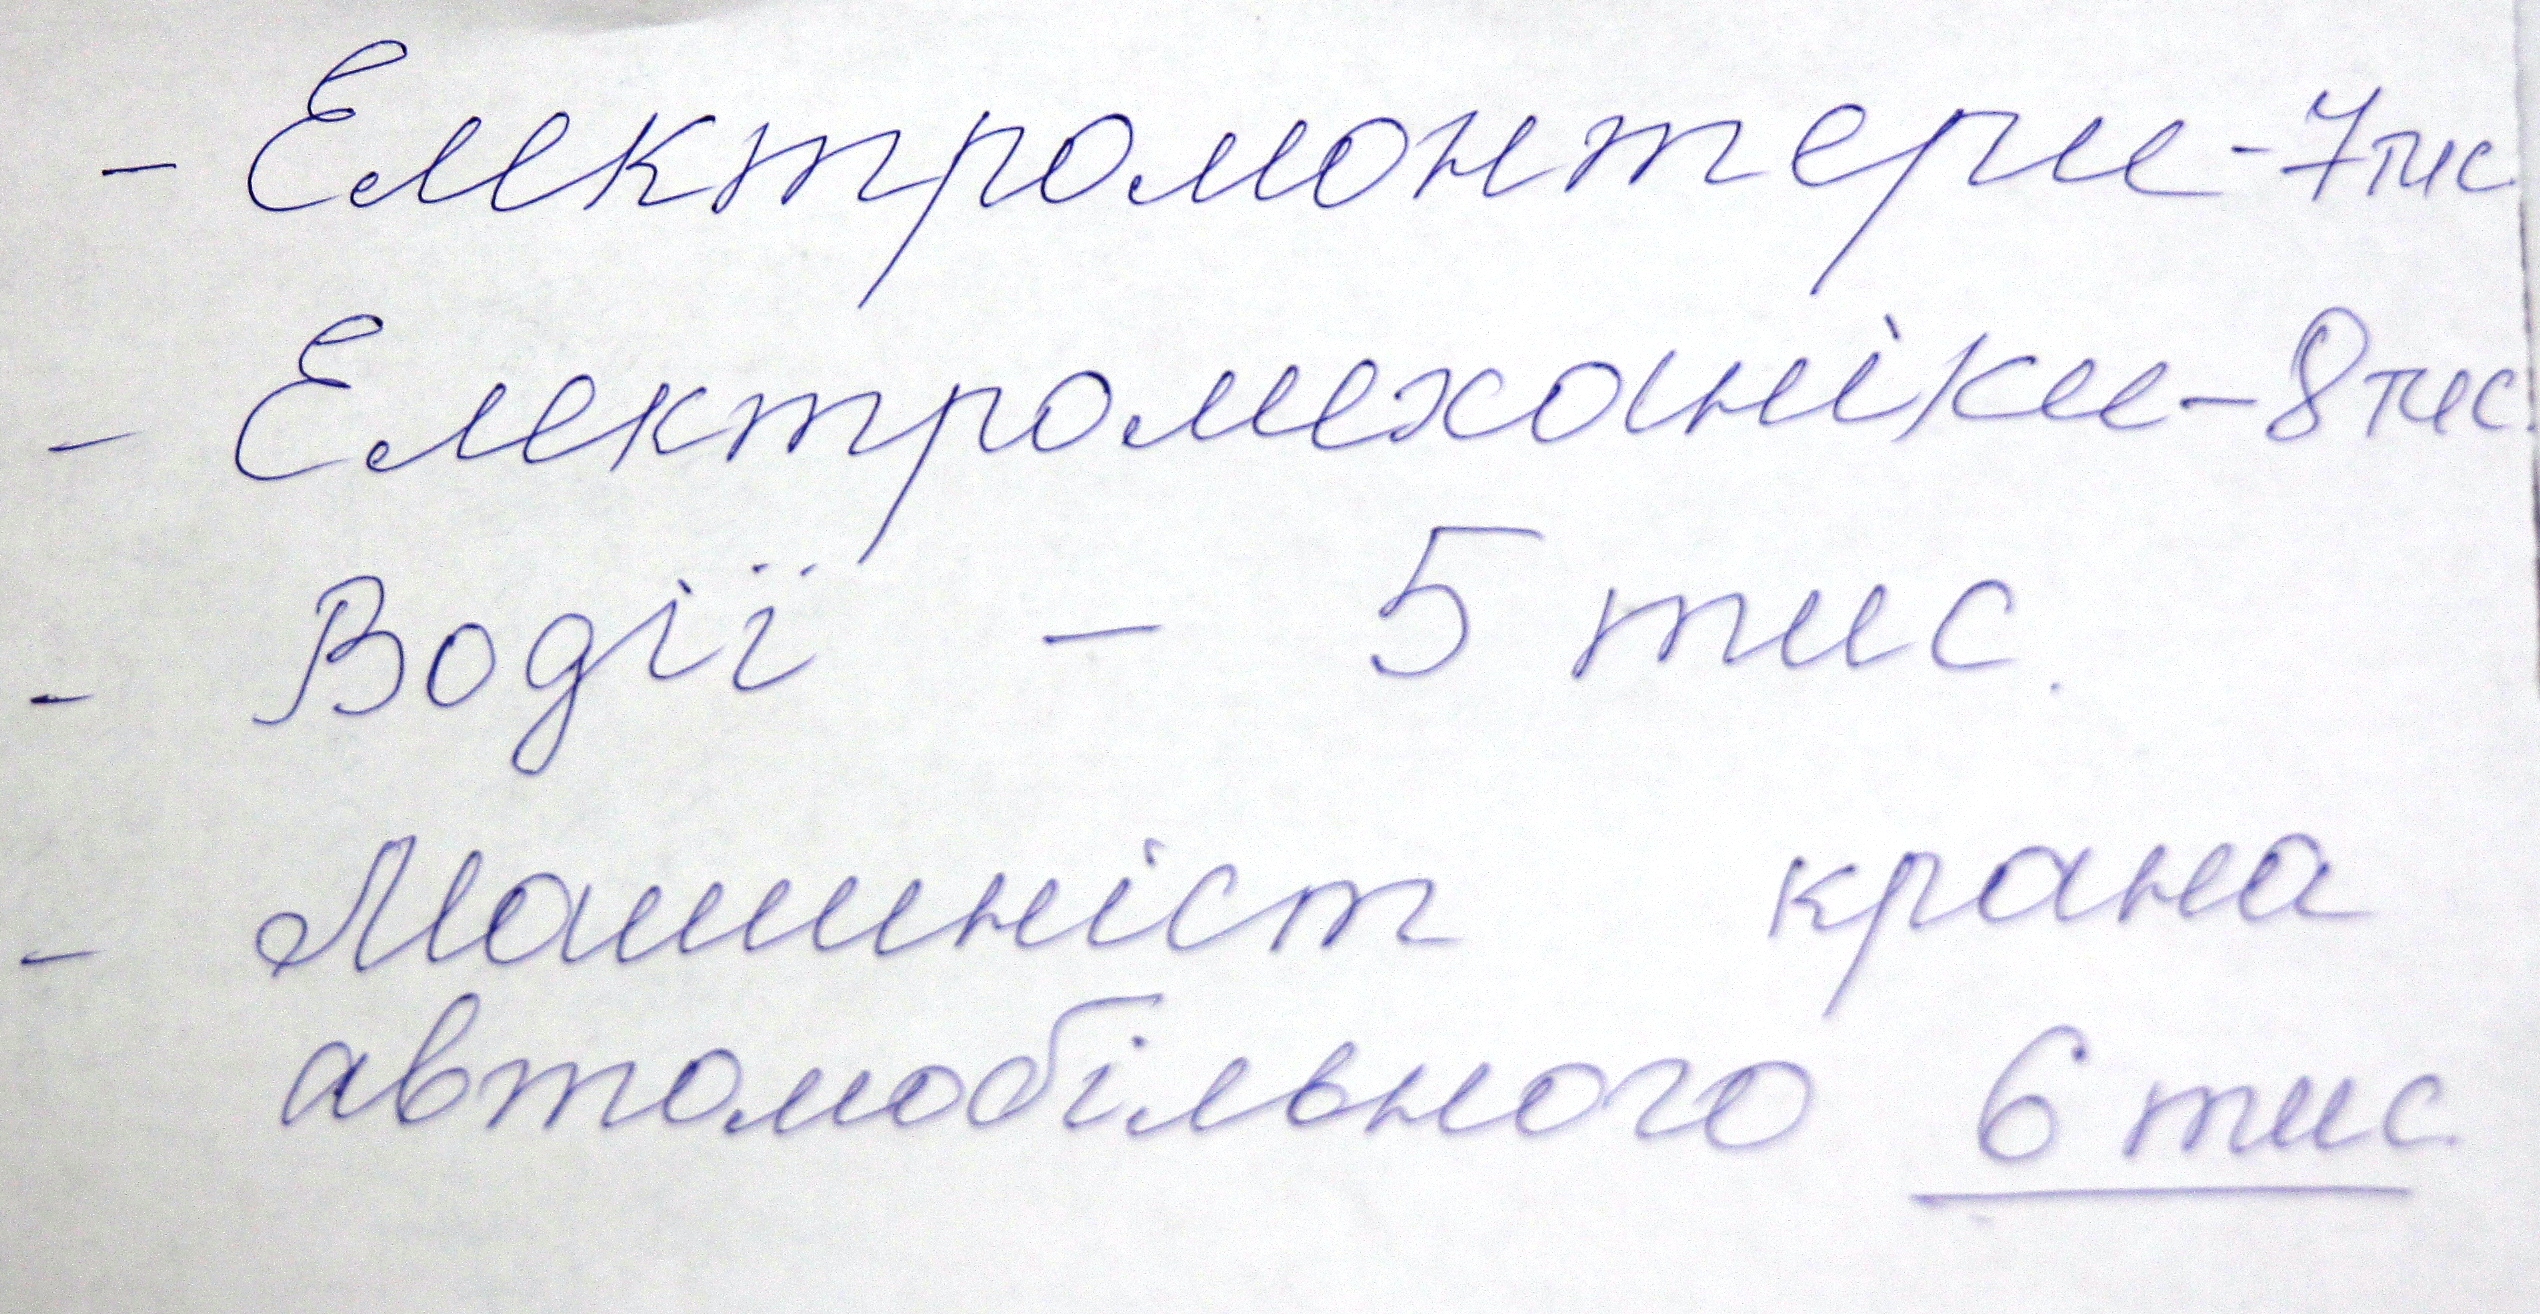 - Електромонтери - 7 тис.
- Електромеханіки - 8 тис.
- Водії - 5 тис.
- Машиніст крана
автомобільного 6 тис.